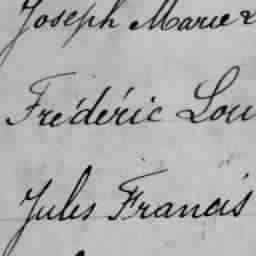 Joseph Marie
Frédéric Lou
Jules Francis